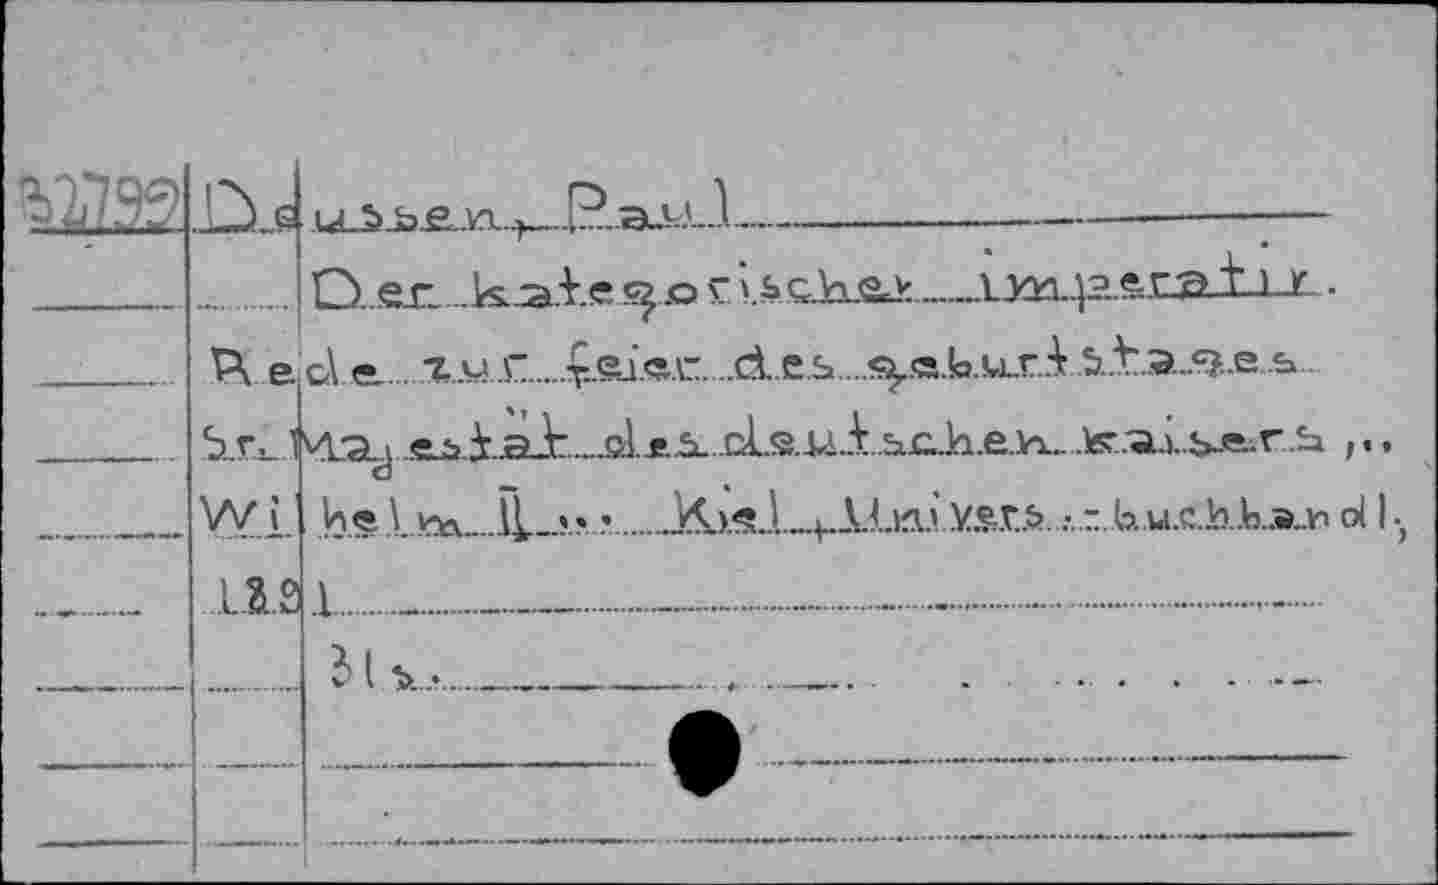 Deussen, Paul
Der kategorischer imperativ.
Rede zur feier des geburtstages
Sr. Majestät des deutschen kaisers ,..
Wilhelm II ... Kiel, Univers.-buchhandl.,
1891
31 s.